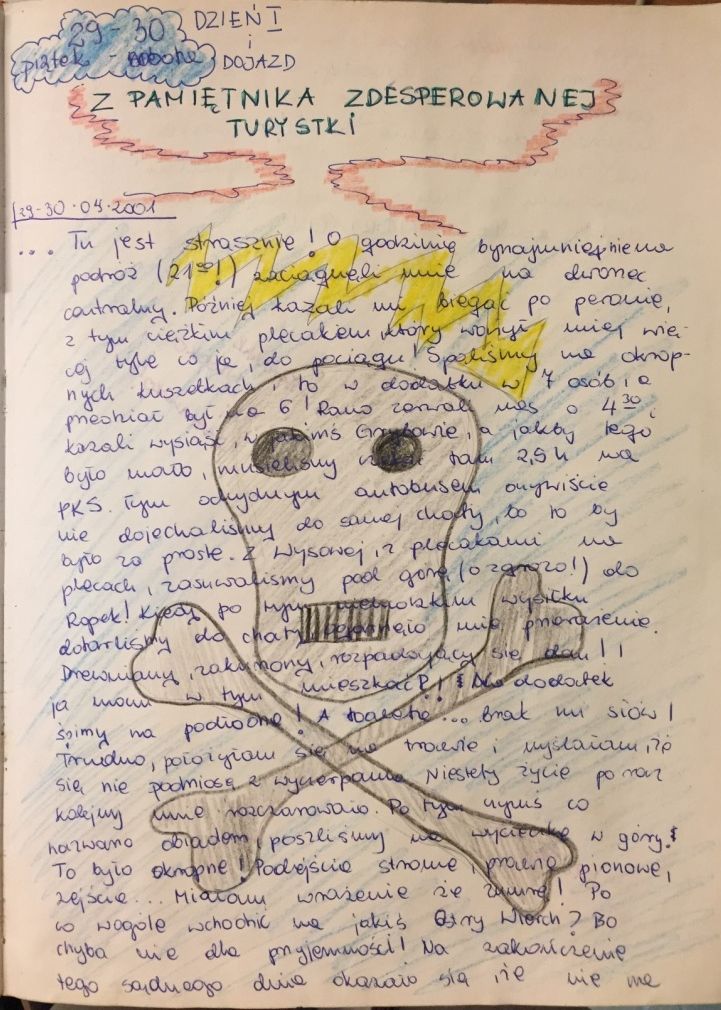 29-30 DZIEŃ I
i
piątek - sobota DOJAZD
Z PAMIĘTNIKA ZDESPEROWANEJ
TURYSTKI
29-30.04.2001
... Tu jest strasznie! O godzinie bynajmniej nie na
podróż (21⁰⁰!) zaciągnęli mnie na dworzec
centralny. Później kazali mi biegać po peronie,
z tym ciężkim plecakiem, który waży mniej wię-
cej tyle co ja, do pociągu! Spaliśmy na okrop-
nych kuszetkach, i to w dodatku w 7 osób, a
przedział był na 6! Rano zerwali nas o 4³⁰ i
kazali wysiąść, w jakimś Grybowie, a jakby tego
było mało, musieliśmy czekać tam 2,5 h na
PKS. Tym ohydnym autobusem oczywiście
nie dojechaliśmy do samej chaty, bo to by
było za proste. Z Wysowej, z plecakami na
plecach, zasuwaliśmy pod górę (o zgrozo!) do
Ropek! Kiedy po tym nieludzkim wysiłku
dotarliśmy do chaty, ogarnęło mnie przerażenie.
Drewniany, zakurzony, rozpadający się dom!!
ja mam w tym mieszkać?! Na dodatek
śpimy na podłodze! A toaleta... brak mi słów!
Trudno, położyłam się na trawie i myślałam, że
się nie podniosę z wycieńpania. Niestety życie po raz
kolejny mnie rozczarowało. Po tym czymś co
nazwano obiadem, poszliśmy na wycieczkę w góry!
To było okropne! Podejścia strome, prawie pionowe,
zejścia... Miałam wrażenie że umrę! Po
co wogóle wchodzić na jakiś Ostry Wierch? Bo
chyba nie dla przyjemności! Na zakończenie
tego sądnego dnia okazało się, że nie ma